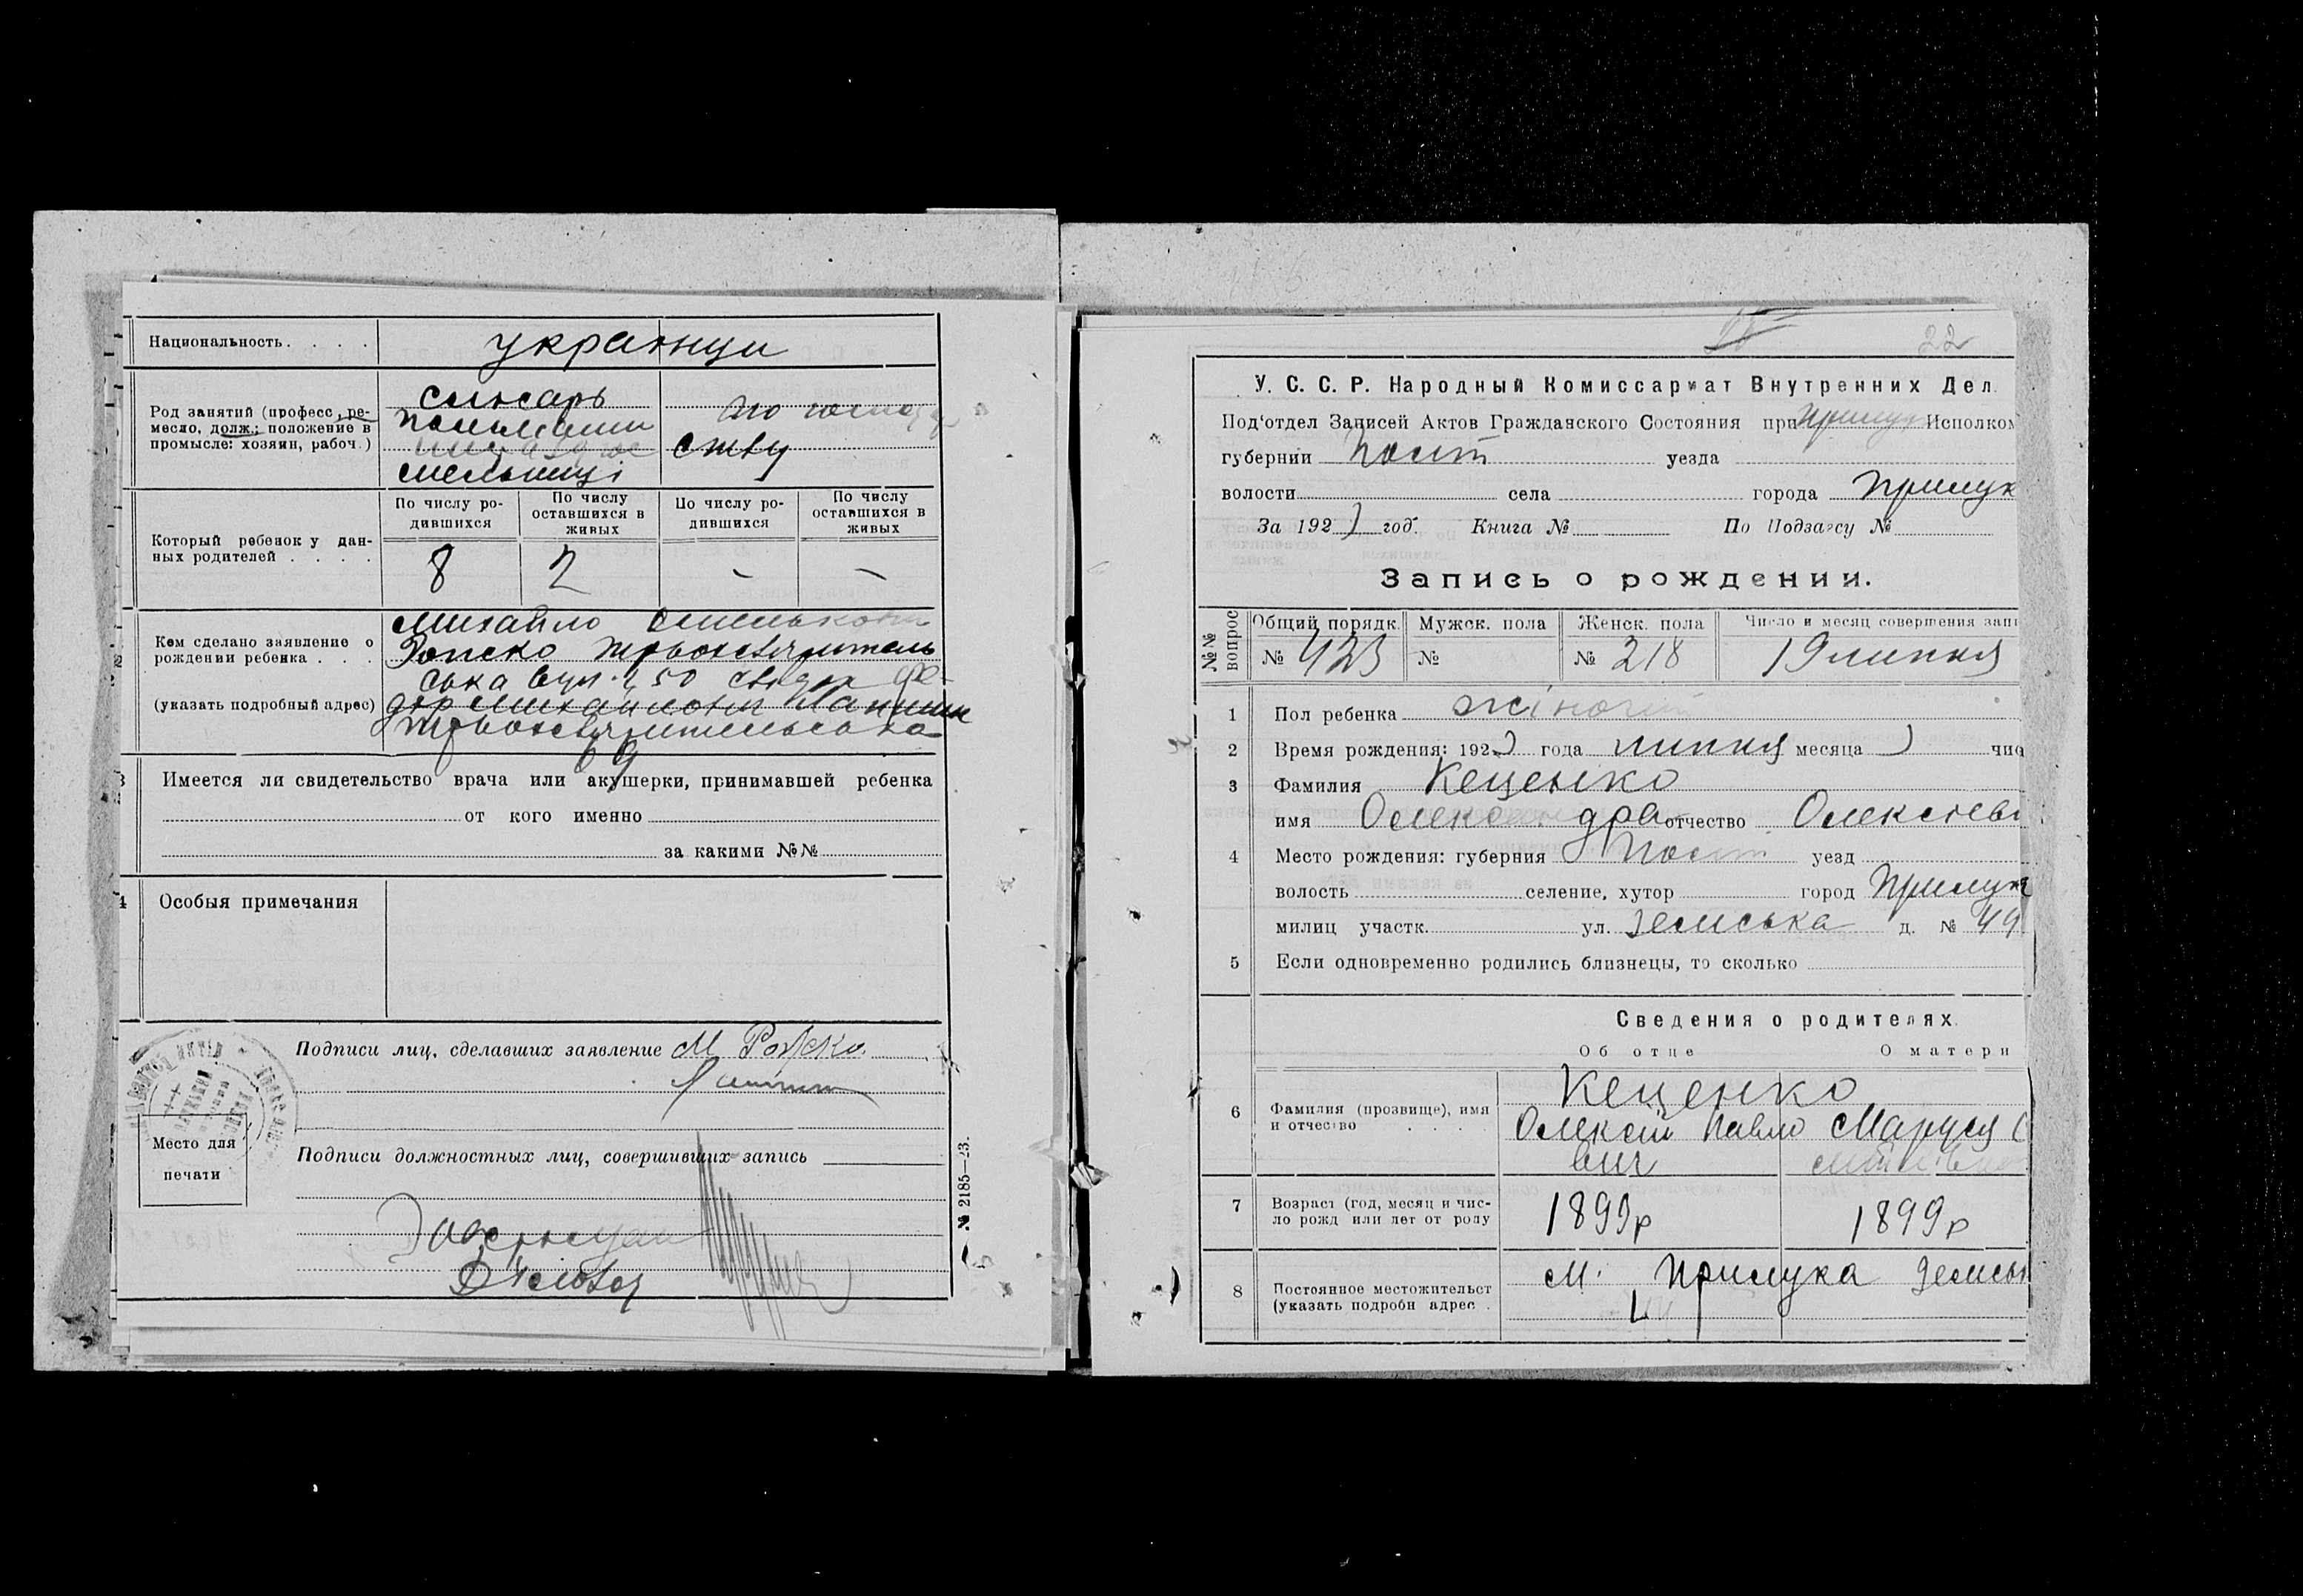 Национальность. . . . .
украинци
Род занятий (професс, ре-
месло, долж.; положение в
промысле: хозяин, рабоч.)
слюсарь
мельниці
ству
По числу ро-
дившихся
По числу
оставшихся в
живых
По числу ро-
дившихся
По числу
оставшихся в
живых
Который ребенок у дан-
ных родителей . . . .
8 2 - -
Кем сделано заявление о
рождении ребенка . . .
(указать подробный адрес)
Михайло
ська вул. 50
69
Имеется ли свидетельство врача или акушерки, принимавшей ребенка
от кого именно
за какими №№
Особыя примечания
Подписи лиц, сделавших заявление М
Место для
печати
Подписи должностных лиц, совершивших запись
№ 2185—23.
22
У. С. С. Р. Народный Комиссариат Внутренних Дел.
Под'отдел Записей Актов Гражданского Состояния при Прилук Исполком
губернии Полт уезда
волости села города Прилук
За 192 год. Книга № По Подзагсу №
Запись о рождении.
№№ вопрос
Общий порядк. Мужск. пола Женск. пола Число и месяц совершения запи
№ 423 № № 218 19 липня
1 Пол ребенка жіночий
2 Время рождения: 192 года липня месяца чис
3 Фамилия Кеценко
имя Олександра отчество Олексіевн
4 Место рождения: губерния Полт уезд
волость селение, хутор город Прилук
милиц участк. ул. Земська д. № 49
5 Если одновременно родились близнецы, то сколько
Сведения о родителях.
Об отце О матери
6 Фамилия (прозвище), имя
и отчество . . . .
Кеценко
Олексій Павло Маруся
вич
7 Возраст (год, месяц и чис-
ло рожд или лет от роду
1899р 1899р
8 Постоянное местожительст
(указать подробн адрес .
м. Прилука Земськ